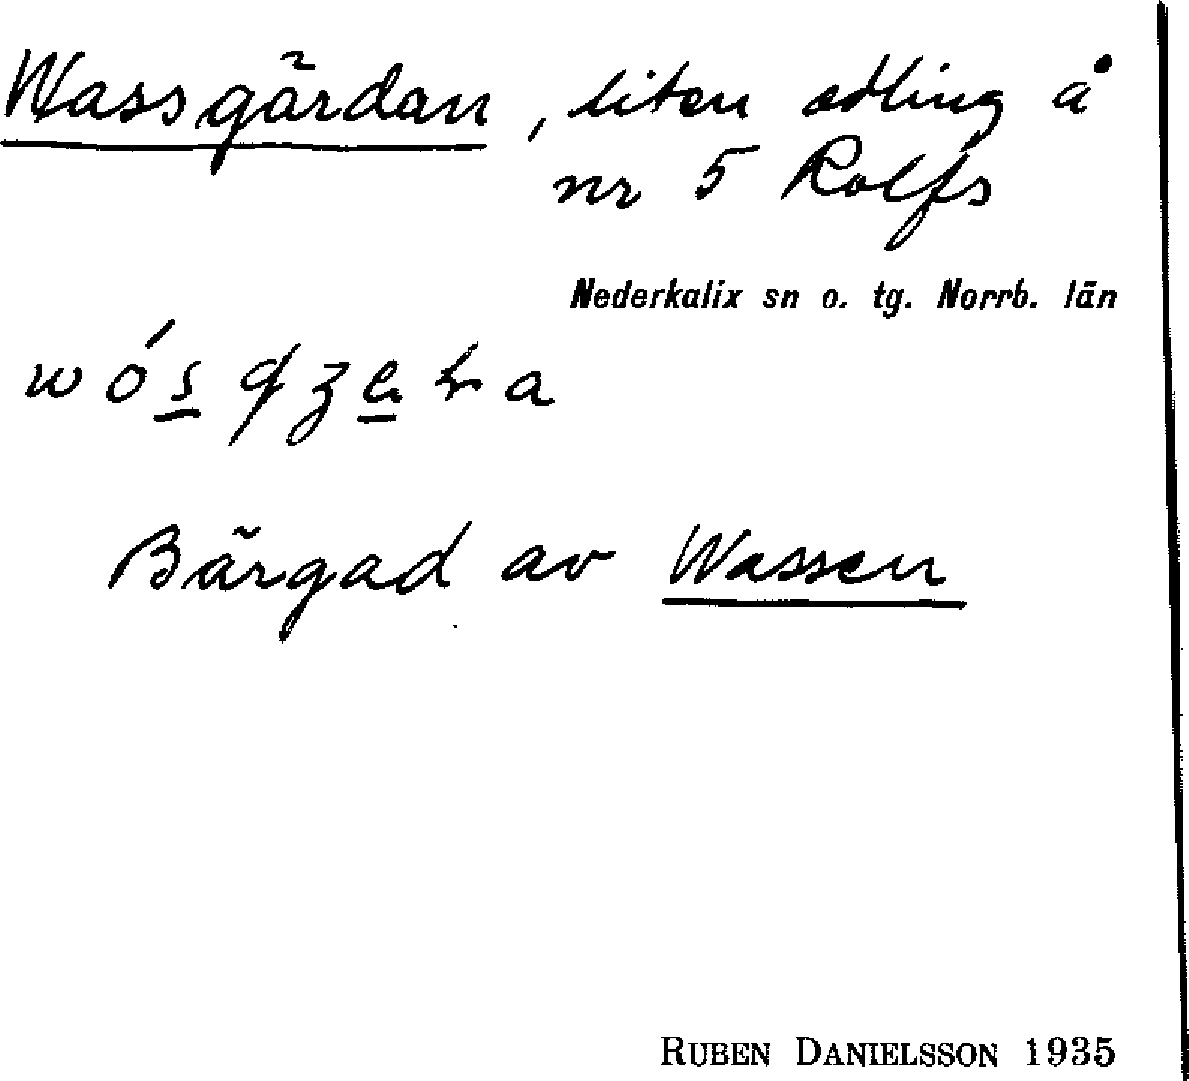 Wassgärdan, liten odling å
nr 5 Rolfs
Nederkalix sn o. tg. Norrb. län
Bärgad av Wassen
RUBEN DANIELSSON 1935